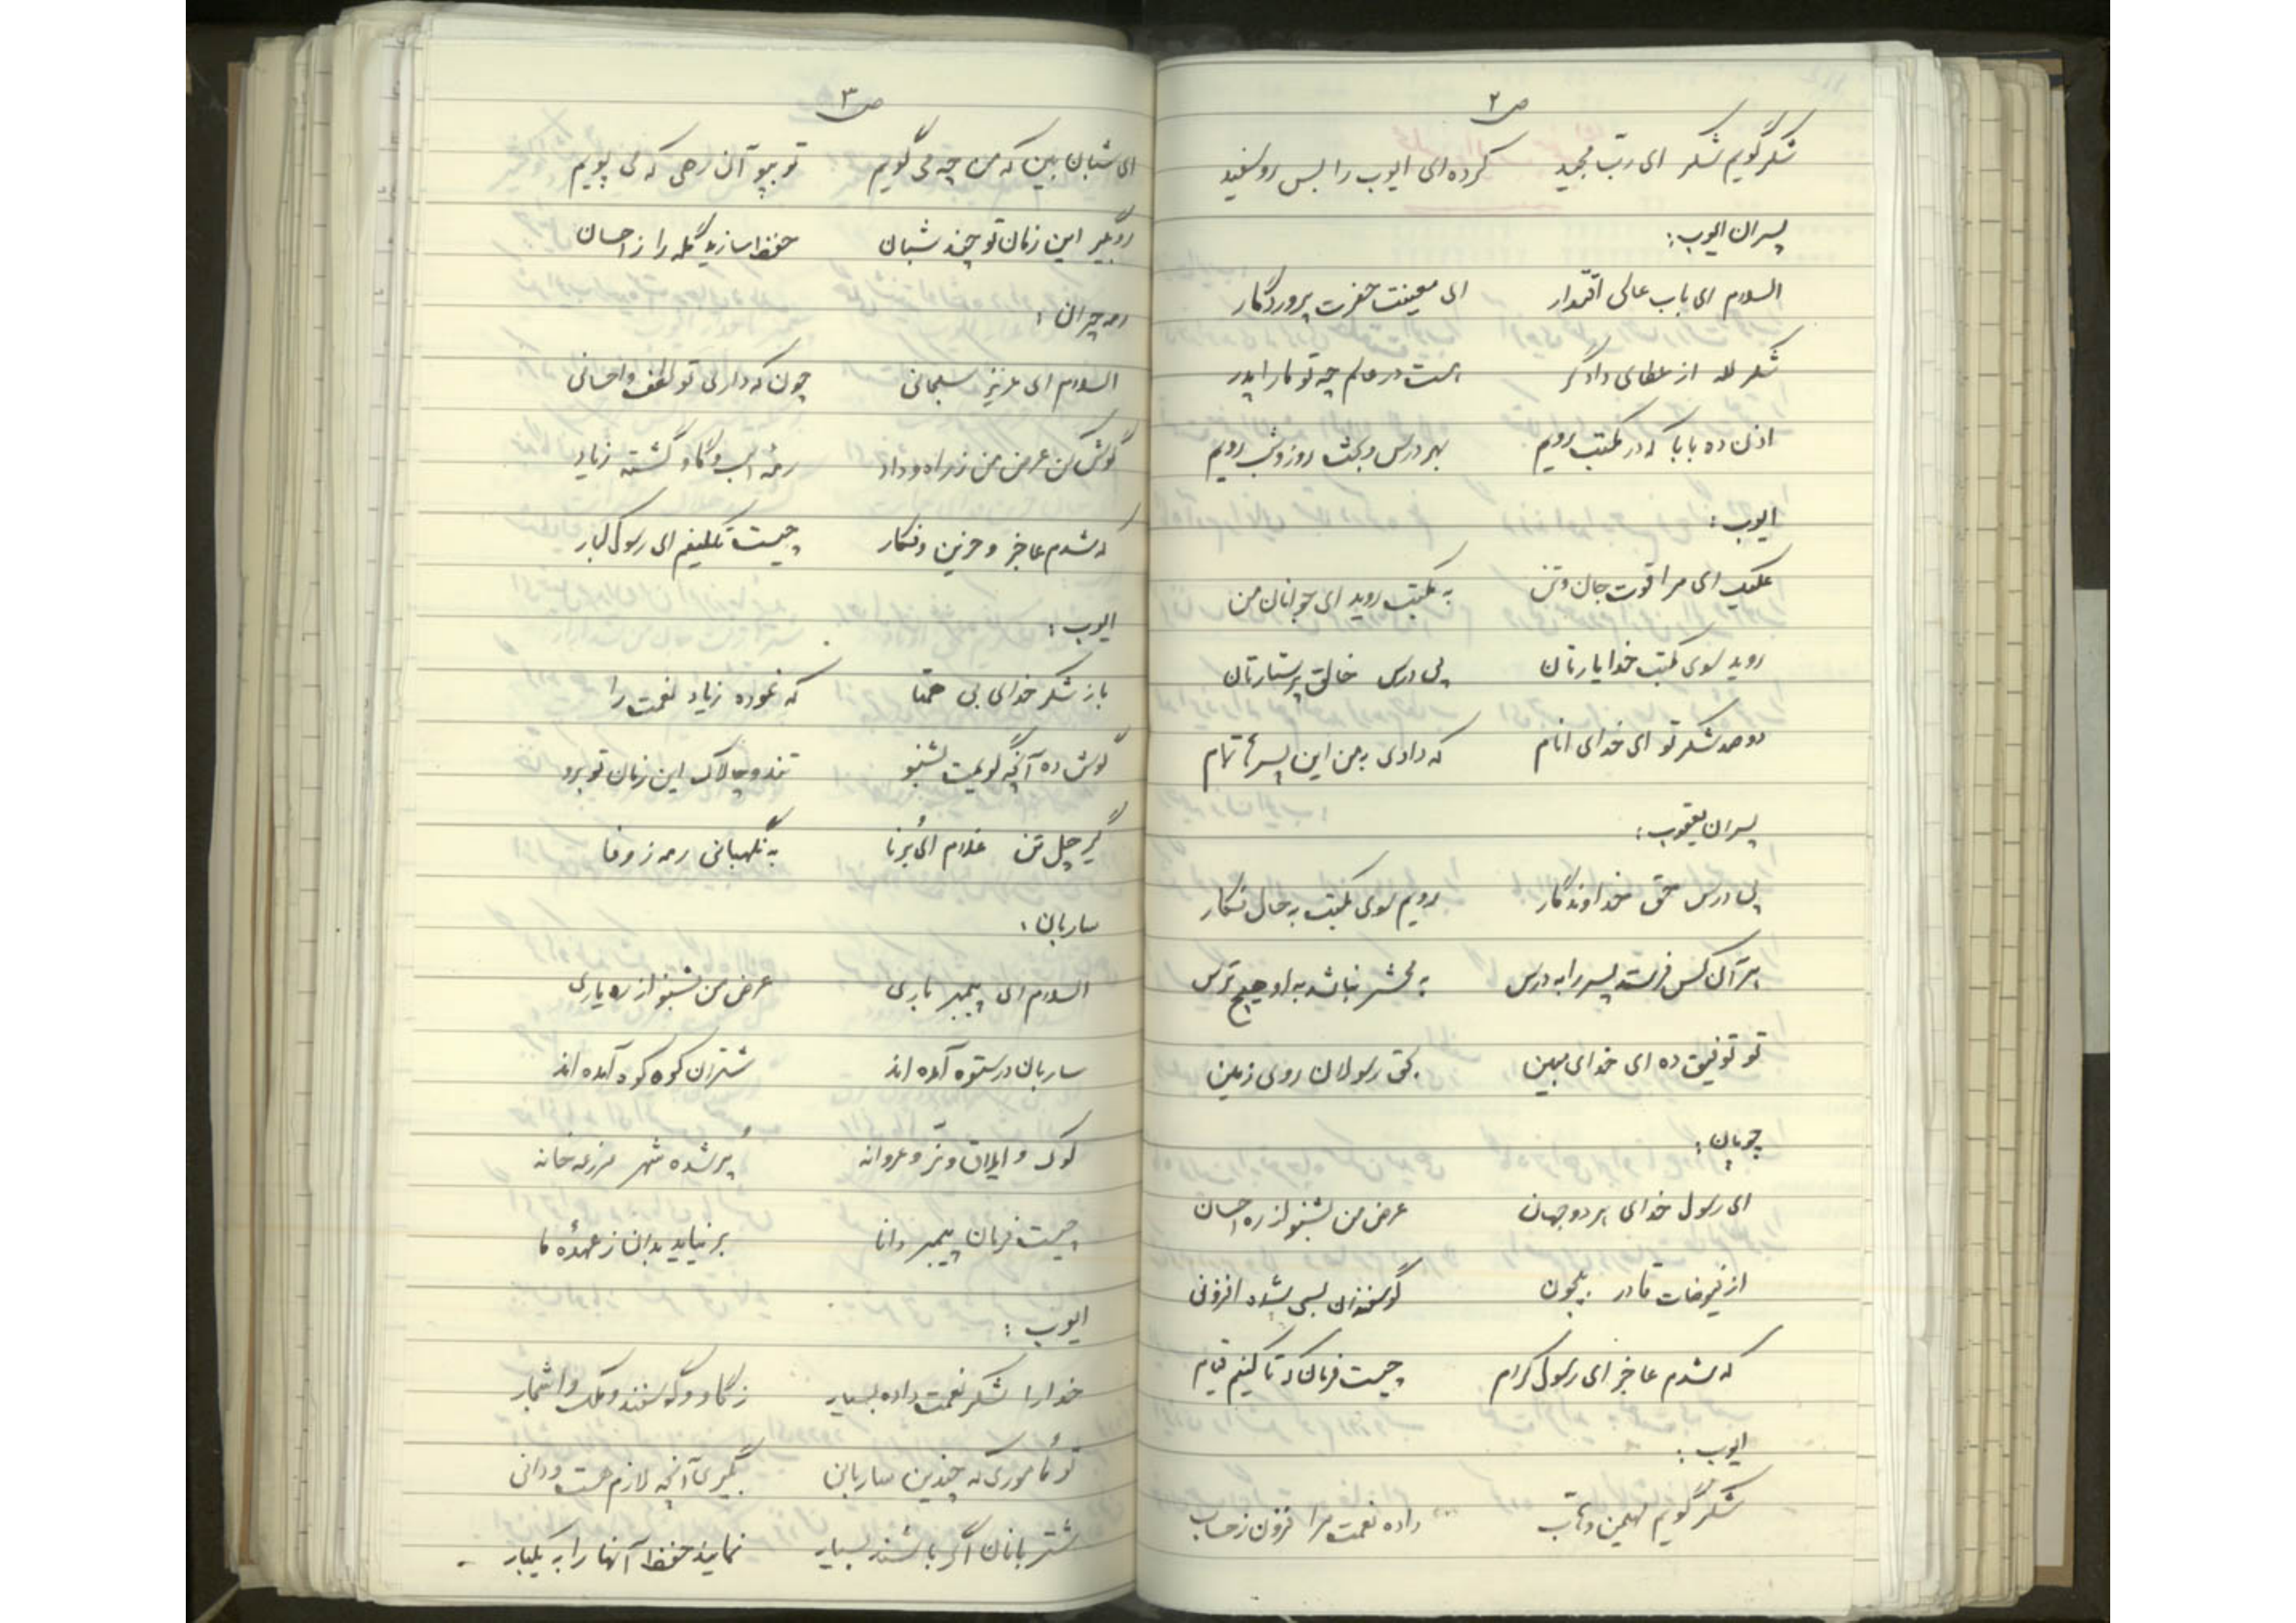 ص ۲
شکر گویم شکر ای رب مجید کرده‌ای ایوب را بس روسفید
پسران ایوب:
السلام ای باب عالی اقتدار ای معینت حضرت پروردگار
شکر لله از عطای دادگر هست در عالم چه تو ما را پدر
اذن ده بابا که در مکتب رویم بهر درس و بحث روز و شب رویم
ایوب:
علیک ای مرا قوت جان و تن به مکتب روید ای جوانان من
روید سوی مکتب خدا یارتان پی درس خالق پرستارتان
دو صد شکر تو ای خدای انام که دادی به من این پسرها تمام
پسران یعقوب:
پی درس حق خداوندگار رویم سوی مکتب به حال فکار
هر آن کس فرستد پسر را به درس به محشر نباشد به او هیچ ترس
تو توفیق ده ای خدای مبین بحق رسولان روی زمین
چوپان:
ای رسول خدای هر دو جهان عرض من بشنو از ره احسان
از فیوضات قادر بیچون گوسفندان بسی شده افزونی
که شدم عاجز ای رسول کرام چیست فرمان که تا کنیم قیام
ایوب:
شکر گویم مهیمن وهاب داده نعمت مرا فزون ز حساب
ص ۳
ای شبان بین که من چه می گویم تو بپو آن رهی که می پویم
رو بگیر این زمان تو چند شبان حفظ سازید گله را ز احسان
رمه چران:
السلام ای عزیز سبحانی چون که داری تو لطف و احسانی
گوش کن عرض من ز راه وداد رمهٔ اسب و گاو گشته زیاد
که شدم عاجز و حزین و فکار چیست تکلیفم ای رسول کبار
ایوب:
باز شکر خدای بی همتا که نموده زیاد نعمت را
گوش ده آنچه گویمت بشنو تند و چالاک این زمان تو برو
گیر چل تن غلام ای بُرنا به نگهبانی رمه ز وفا
ساربان:
السلام ای پیمبر باری عرض من بشنو از ره یاری
ساربان در ستوه آمده اند شتران کوه کوه آمده اند
لوک و ایلاق و نر و عروانه پُر شده شهر مزرعه خانه
چیست فرمان پیمبر دانا بر نیاید بدان ز عهدهٔ ما
ایوب:
خدا را شکر نعمت داده بسیار ز گاو و گوسفند و ملک و اشجار
تو مأموری که چندین ساربانی بگیری آنچه لازم هست و دانی
شتربانان اگر باشند بسیار نمایند حفظ آنها را به یکبار